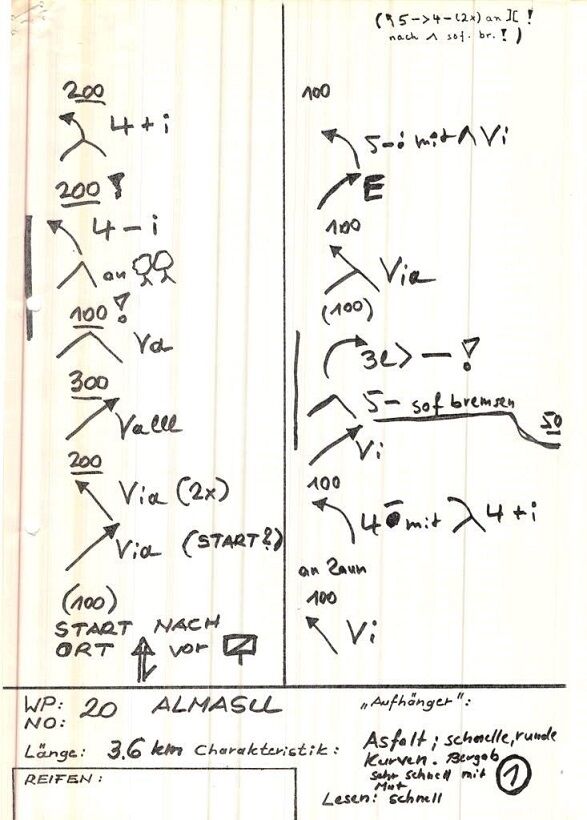 (↰ 5 -> 4 - (2x) an ][ !
nach ∧ sof. br. ! )
200
4 + i
200 !
4 - i
an
100 !
Va
300
Valll
200
Via (2x)
Via (START!)
(100)
START NACH
ORT vor
100
5 - i mit ∧ Vi
E
100
Via
(100)
3l > — !
5 - sof bremsen
50
Vi
100
4 - mit 4 + i
an Zaun
100
Vi
WP: 20 ALMASU
NO:
„Aufhänger":
Länge: 3.6 km Charakteristik: Asfalt; schnelle, runde
Kurven. Bergab
sehr schnell mit
Mut
1
REIFEN:
Lesen: schnell